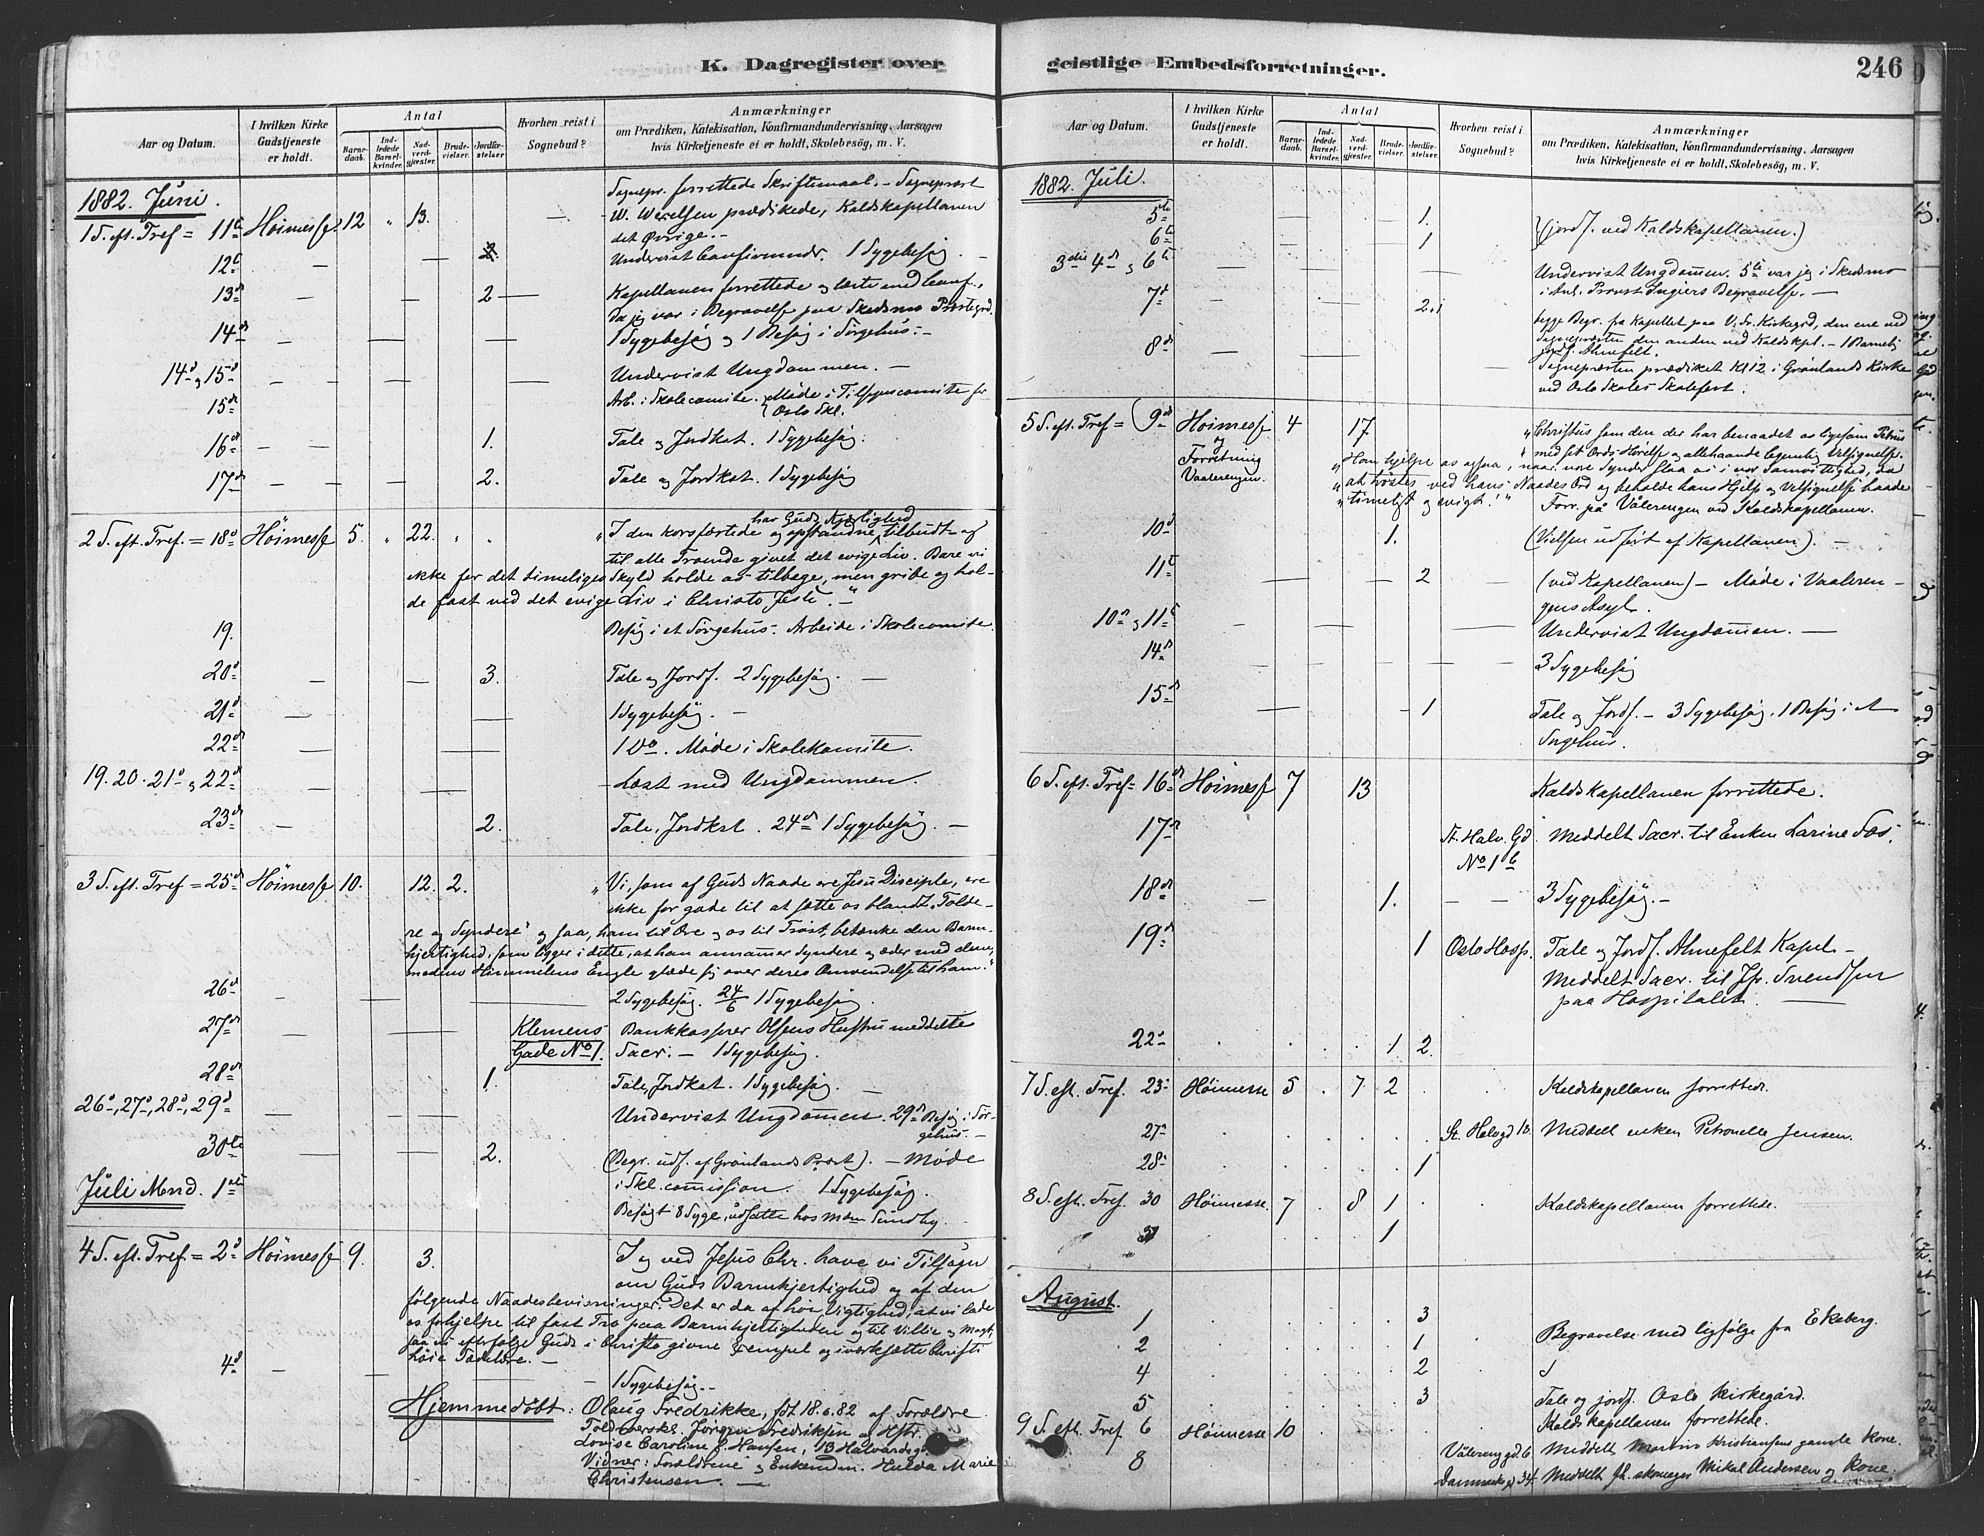 K. Dagregister over
Aar og Datum.
I hvilken Kirke Gudstjeneste er holdt.
Antal
Barnedaab.
Indledede Barselkvinder.
Nadverdgjester.
Brudevielser.
Jordfæstelser.
Hvorhen reist i Sognebud?
Anmærkninger
om Prædiken, Katekisation, Konfirmandundervisning, Aarsagen
hvis Kirketjeneste ei er holdt, Skolebesög, m. V.
1882. Juni.
Sognepr. forrettede Skriftemaal. – Sogneprest
1 S. eft. Tref = 11te Höimesse 12 " 13. W. Wexelsen prædikede, Kaldskapellanen
det Øvrige. –
12te Undervist Confirmander. 1 Sygebesög.
13de 2 Kapellanen forrettede og læste med Conf.,
da jeg var i Begravelse paa Skedsmo Præstegrd.
14de 1 Sygebesög og 1 Besög i Sörgehus. –
14de og 15de Undervist Ungdommen. –
15de Arb. i Skolecomite. Möde i Tilsynscomite for
Oslo Skl.
16de 1. Tale og Jordkat. 1 Sygebesög.
17de 2. Tale og Jordkat. 1 Sygebesög
2 S. eft. Tref. = 18de Höimesse 5. " 22. " . "I den korsfæstede og opstandne har Guds Kjærlighed tilbudt og
til alle Troende givet det evige Liv. Bare vi
ikke for det timeliges Skyld holde os tilbage, men gribe og hol-
de fast ved det evige Liv i Christo Jesu. –"
19. Besög i et Sorgehus. Arbeide i Skolecomite.
20de 3. Tale og Jordf. 2 Sygebesög. –
21de 1 Sygebesög. –
22de 1 Do. Möde i Skolekomite.
19. 20. 21de og 22de Læst med Ungdommen.
23de 2. Tale, Jordkat. 24de 1 Sygebesög. –
3 S. eft. Tref = 25de Höimesse 10. 12. 2. "Vi, som af Guds Naade ere Jesu Disciple, ere
ikke for gode til at sætte os blandt "Tolde-
re og Syndere" og saa, ham til Ære og os til Tröst, betænke den Barm-
hjertighed, som ligger i dette, at han annammer Syndere og æder med dem,
medens Himmelens Engle glæde sig over deres Omvendelse til ham."
26de 2 Sygebesög. 24/6 1 Sygebesög.
27de Klemens Gade No 1. Bankkasserer Olsens Hustru meddelte
Sacr. – 1 Sygebesög.
28de 1. Tale, Jordkat. 1 Sygebesög. –
26de, 27de, 28de, 29de Undervist Ungdommen. 29de Besög i Sör-
gehus. –
30te 2. (Begr. udf. af Grönlands Præst). – Möde
Juli Mend. 1ste i Skl. commission. 1 Sygebesög.
Besögt 8 Syge, udsatte hos Mdm Sundby.
4 S. eft. Tref = 2de Höimesse 9. 3. I og ved Jesus Chr. have vi Tilsagn
om Guds Barmhjertighed og af den
fölgende Naadesbevisninger. Det er da af höi Vigtighed, at vi lade
os forhjelpe til fast Tro paa Barmhjertigheden og til Villie og Magt,
saa vi efterfölge Guds i Christo givne Exempel og iverksætte Christi
höie Idealære. –
4de 1 Sygebesög. –
Hjemmedöbt: Olaug Fredrikke, föt 18.6.82 af Forældre
Toldoversk. Jörgen Fredriksen og Hstr.
Lovise Caroline f. Hansen, 13 Halvardsgd.
Vidner: Forældrene og Enkemdm. Hulda Marie
Christensen. –
geistlige Embedsforretninger.
246
Aar og Datum.
I hvilken Kirke Gudstjeneste er holdt.
Antal
Barnedaab.
Indledede Barselkvinder.
Nadverdgjester.
Brudevielser.
Jordfæstelser.
Hvorhen reist i Sognebud?
Anmærkninger
om Prædiken, Katekisation, Konfirmandundervisning, Aarsagen
hvis Kirketjeneste ei er holdt, Skolebesög, m. V.
1882. Juli.
5te 1. (jordf. ved Kaldskapellanen.)
6te 1
3die 4de og 6te Undervist Ungdommen. 5te var jeg i Skedsmo
i Anl. Provst Ingiers Begravelse. –
7de 2. begge Begr. fra Kapellet paa V. Fr. Kirkegrd, den ene ved
Sognepræsten den anden ved Kaldskpl. – 1 Barnelig
jordf. Ahnefelt.
8de Sognepræsten prædiket Kl 12 i Grönlands Kirke
ved Oslo Skoles Skolefest.
5 S. eft. Tref = 9de Höimesse og Forretning Vaalerengen. 4 17. "Christus som den der har benaadet os ligesom Petrus
"med sit Ords Hörelse og allehaande legemlig Velsignelse.
"Han hjelpe os ogsaa, naar vore Synder slaa os i vor Samvittighed, da
"at tröstes ved hans Naades Ord og beholde hans Hjelp og Velsignelse baade
"timeligt og evigt!" Forr. på Vålerengen ved Kaldskapellanen.
10de 1. (Vielsen udfört af Kapellanen). –
11te 2 (ved Kapellanen) – Möde i Vaaleren-
gens Asyl.
10de og 11te Undervist Ungdommen. –
14de 3 Sygebesög
15de 1 Tale og Jordf. – 3 Sygebesög, 1 Besög i et
Sorgehus.
6 S. eft. Tref = 16de Höimesse 7 13 Kaldskapellanen forrettede.
17de St. Halv. Gd No 16 Meddelt Sacr. til Enken Larine Sas.
18de 1. 3 Sygebesög. –
19de 1 Oslo Hosp. Tale og Jordf. Ahnefelt Kapel –
Meddelt Sacr. til Jfr. Svendsen
paa Hospitalet. –
22de 1 2.
7 S. eft. Tref. 23de Höimesse 5 . 7 2 Kaldskapellanen forrettede.
27de St. Halvgd 12. Meddelt enken Petronelle Jensen.
28de 1
8 S. eft. Tref. 30 Höimesse. 7 . 8 1 . Kaldskapellanen forrettede.
31 1
August.
1 3
2 1 Begravelse med ligfölge fra Ekeberg.
4 2
5 3 Tale og jordf. Oslo Kirkegård.
9 S. eft. Tref 6 Höimesse 10 Kaldskapellanen forrettede.
Vålereng gd. 6 Meddelt Martin Kristiansens gamle kone.
8 Danmarks gd 34. Meddelt fh. skomager Mikal Andersen og Kone.